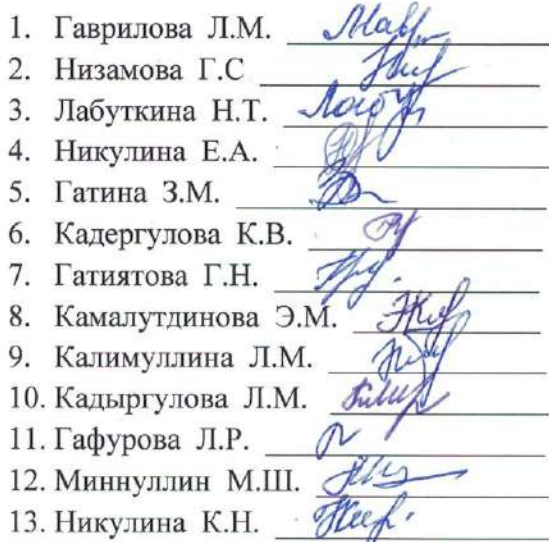 1. Гаврилова Л.М.
2. Низамова Г.С
3. Лабуткина Н.Т.
4. Никулина Е.А.
5. Гатина З.М.
6. Кадергулова К.В.
7. Гатиятова Г.Н.
8. Камалутдинова Э.М.
9. Калимуллина Л.М.
10. Кадыргулова Л.М.
11. Гафурова Л.Р.
12. Миннуллин М.Ш.
13. Никулина К.Н.